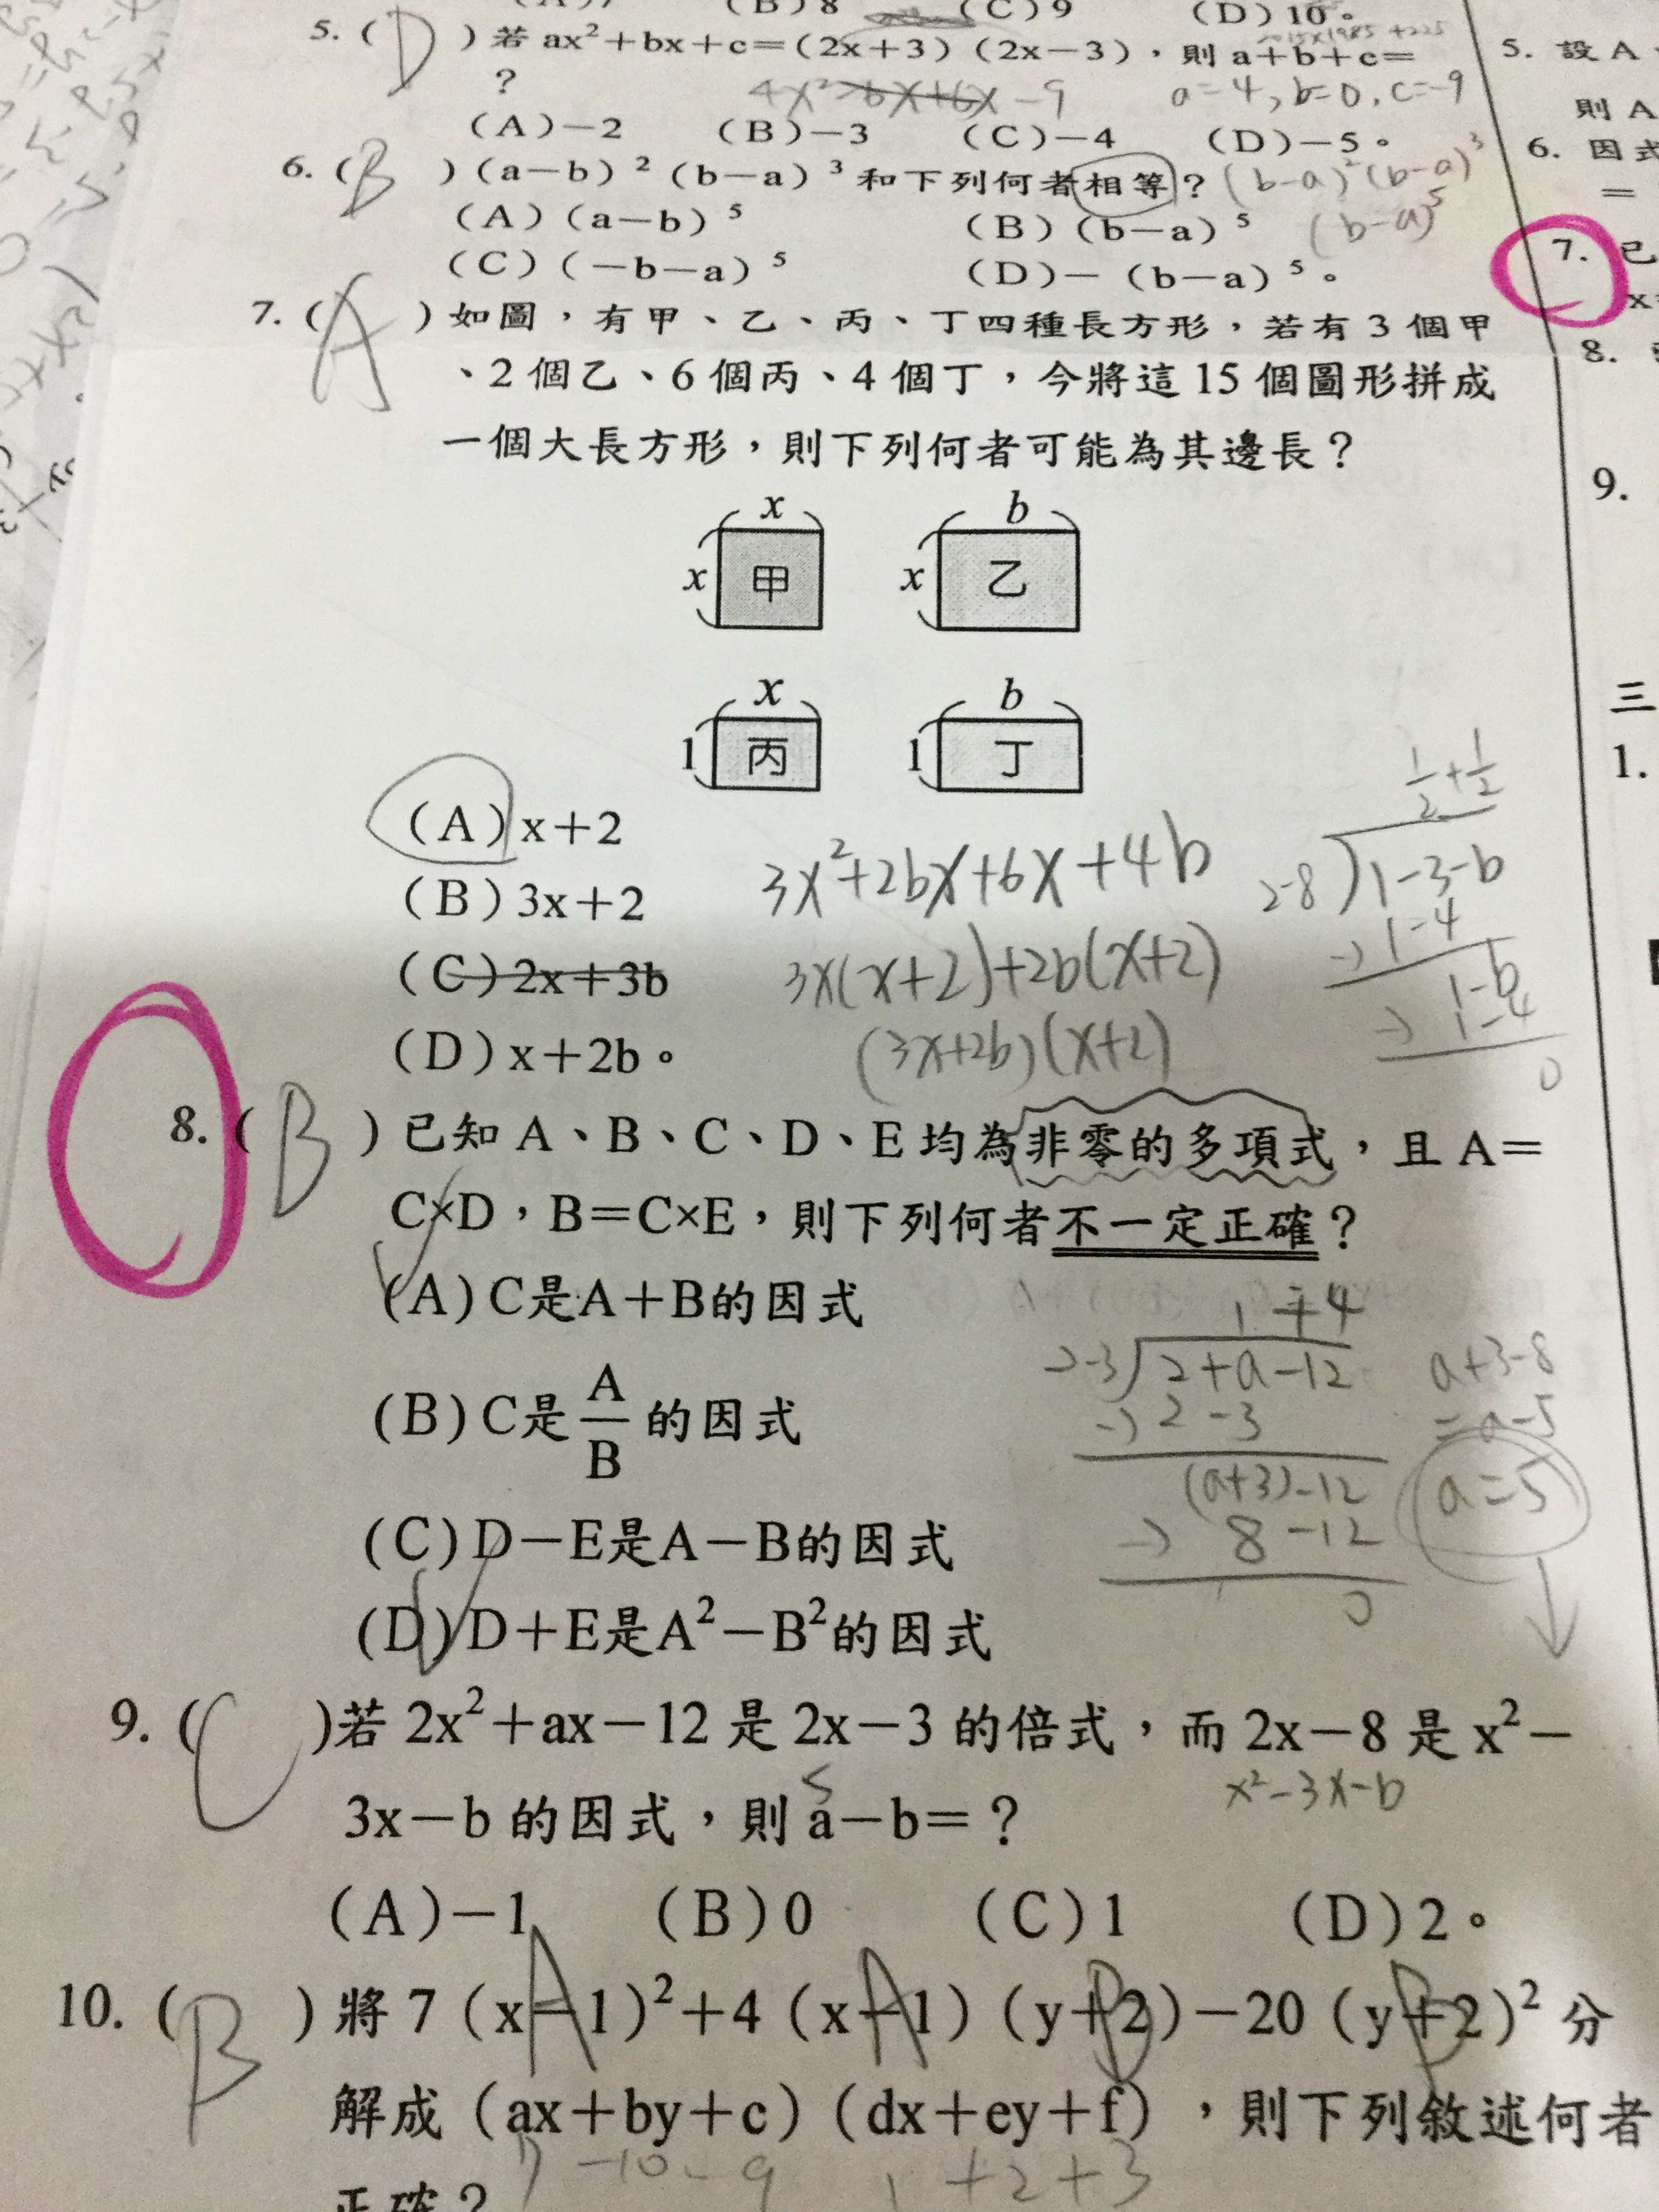 (B)8 (C)9 (D)10。
5. (D)若 ax²+bx+c=(2x+3)(2x-3),則 a+b+c=
?
4x²-6x+6x-9 a=4, b=0, c=-9
(A)-2 (B)-3 (C)-4 (D)-5。
6. (B)(a-b)²(b-a)³和下列何者相等? (b-a)²(b-a)³
(A)(a-b)⁵ (B)(b-a)⁵ (b-a)⁵
(C)(-b-a)⁵ (D)-(b-a)⁵。
7. (A)如圖,有甲、乙、丙、丁四種長方形,若有3個甲
、2個乙、6個丙、4個丁,今將這15個圖形拼成
一個大長方形,則下列何者可能為其邊長?
x b
x 甲 x 乙
x b
1 丙 1 丁
(A)x+2
(B)3x+2
(C)2x+3b
(D)x+2b。
3x²+2bx+6x+4b
3x(x+2)+2b(x+2)
(3x+2b)(x+2)
1/2+1/2
2-8)1-3-b
-)1-4
1-b
-)1-4
0
8. (B)已知A、B、C、D、E均為非零的多項式,且A=
C×D,B=C×E,則下列何者不一定正確?
(A)C是A+B的因式
(B)C是A/B的因式
(C)D-E是A-B的因式
(D)D+E是A²-B²的因式
1+4
2-3)2+a-12
-)2-3
(a+3)-12
-)8-12
0
a+3-8
=a-5
a=5
9. (C)若 2x²+ax-12 是 2x-3 的倍式,而 2x-8 是 x²-
3x-b 的因式,則 a-b=?
5
x²-3x-b
(A)-1 (B)0 (C)1 (D)2。
10. (B)將 7(x-1)²+4(x-1)(y+2)-20(y+2)²分
A A B B
解成(ax+by+c)(dx+ey+f),則下列敘述何者
7-10-9 1+2+3
正確?
5. 設A
則A
6. 因式
=
7. 已
x
8.
9.
三
1.